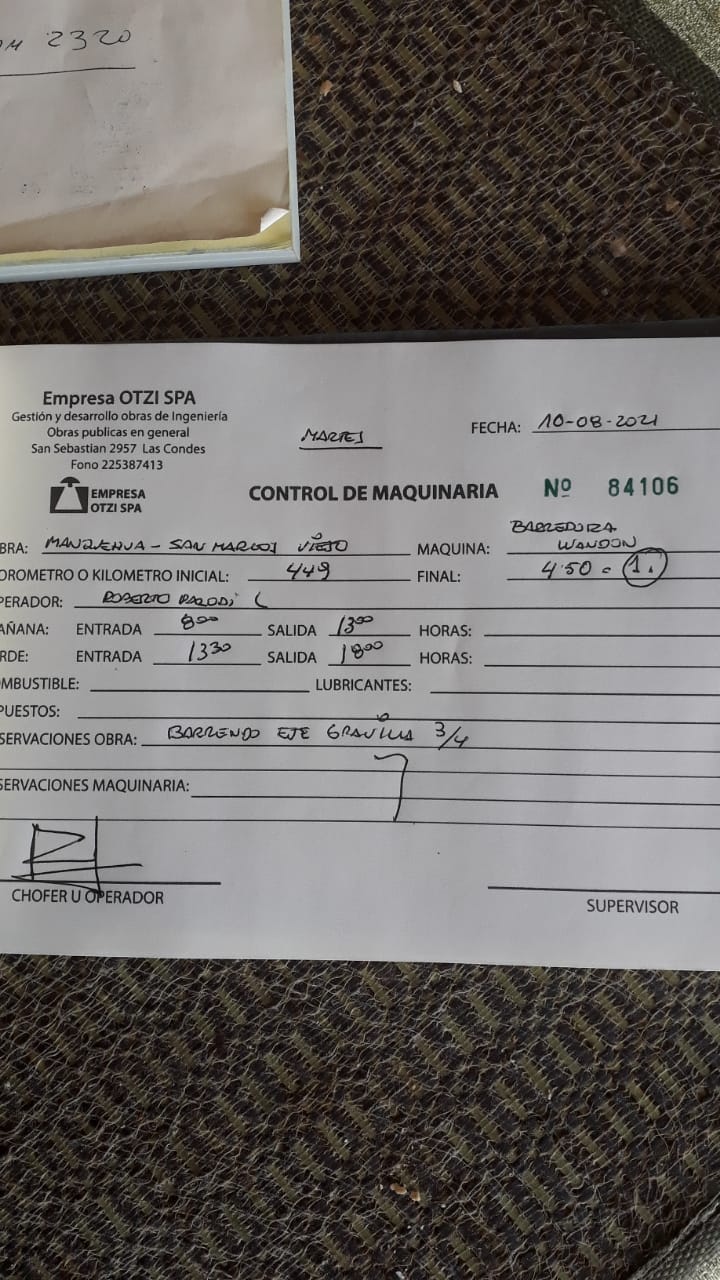 2320
Empresa OTZI SPA
Gestión y desarrollo obras de Ingeniería
Obras publicas en general
San Sebastian 2957 Las Condes
Fono 225387413
EMPRESA
OTZI SPA
MARTES
FECHA: 10-08-2021
CONTROL DE MAQUINARIA
Nº 84106
BRA: MANQUEHUA - SAN MARCOS VIEJO
MAQUINA: BARREDORA
WANDON
OROMETRO O KILOMETRO INICIAL: 449 FINAL: 450 = 1.
PERADOR: ROBERTO PARODI C
AÑANA: ENTRADA 800 SALIDA 1300 HORAS:
RDE: ENTRADA 1330 SALIDA 1800 HORAS:
MBUSTIBLE: LUBRICANTES:
PUESTOS:
SERVACIONES OBRA: BARRENDO EJE GRAVILLA 3/4
SERVACIONES MAQUINARIA:
CHOFER U OPERADOR
SUPERVISOR